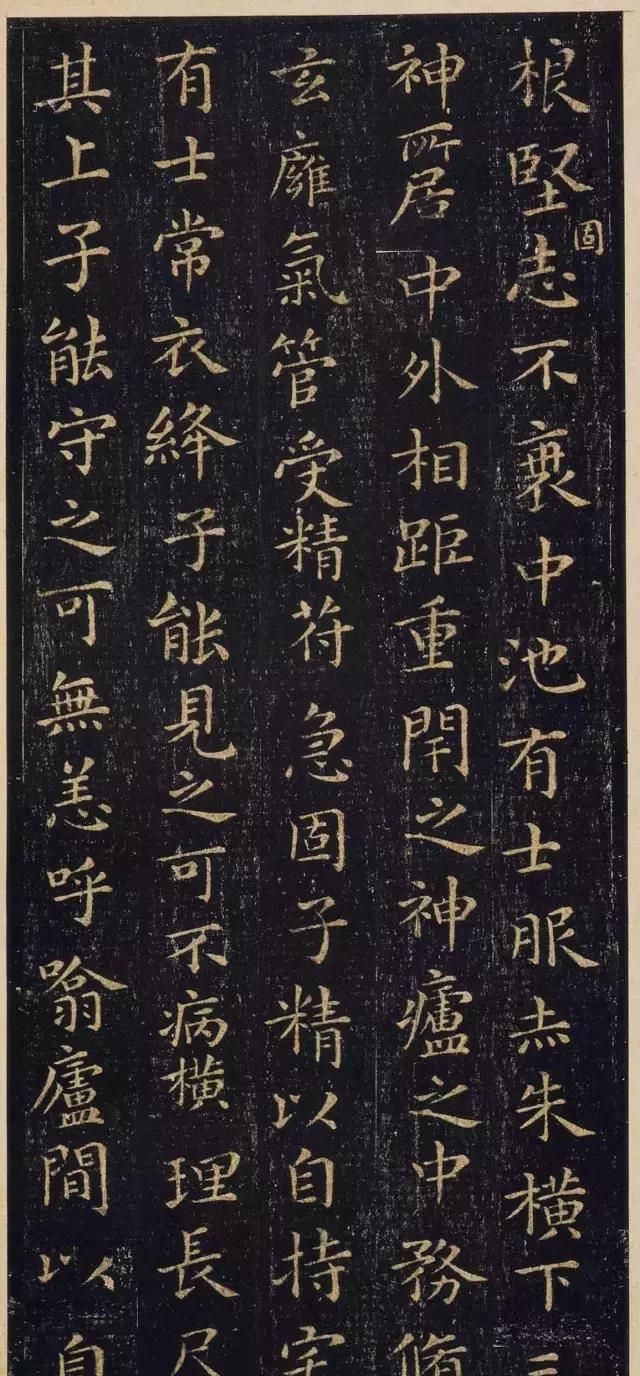 根堅志不衰中池有士服赤朱橫下三
固
神所居中外相距重閇之神廬之中務脩
玄膺氣管受精苻急固子精以自持宅
有士常衣絳子能見之可不病橫理長尺
其上子能守之可無恙呼噏廬間以自